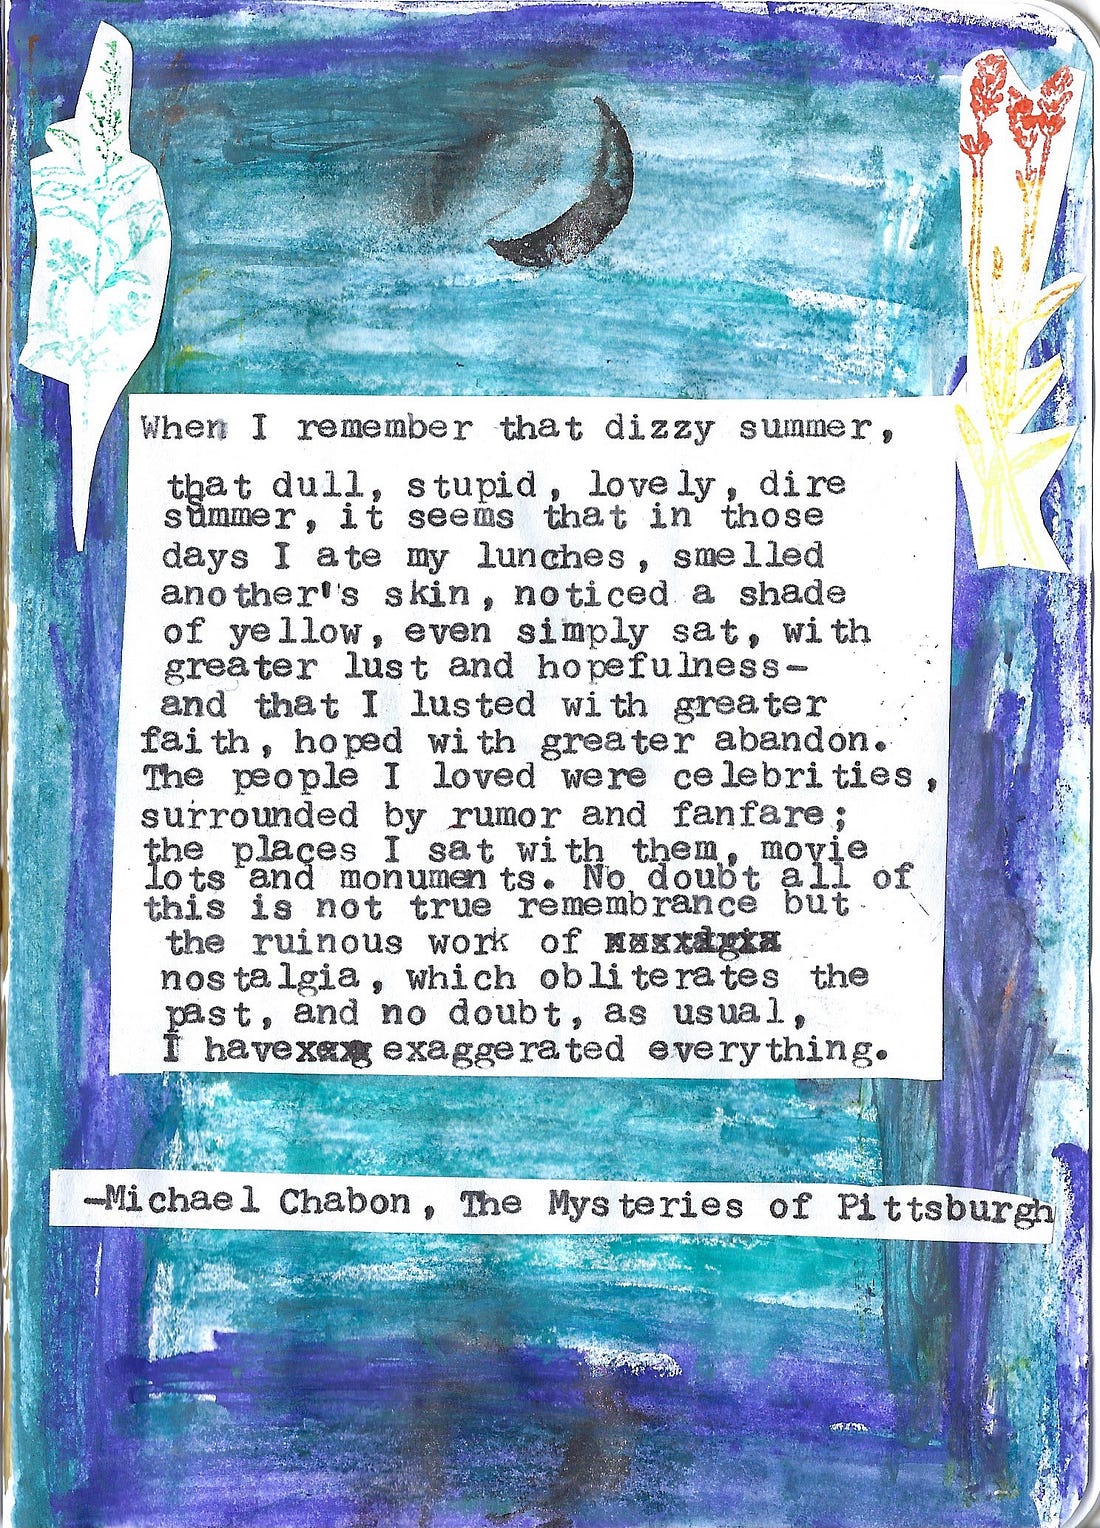 When I remember that dizzy summer,
that dull, stupid, lovely, dire
summer, it seems that in those
days I ate my lunches, smelled
another's skin, noticed a shade
of yellow, even simply sat, with
greater lust and hopefulness-
and that I lusted with greater
faith, hoped with greater abandon.
The people I loved were celebrities,
surrounded by rumor and fanfare;
the places I sat with them, movie
lots and monuments. No doubt all of
this is not true remembrance but
the ruinous work of
nostalgia, which obliterates the
past, and no doubt, as usual,
I have exaggerated everything.
—Michael Chabon, The Mysteries of Pittsburgh